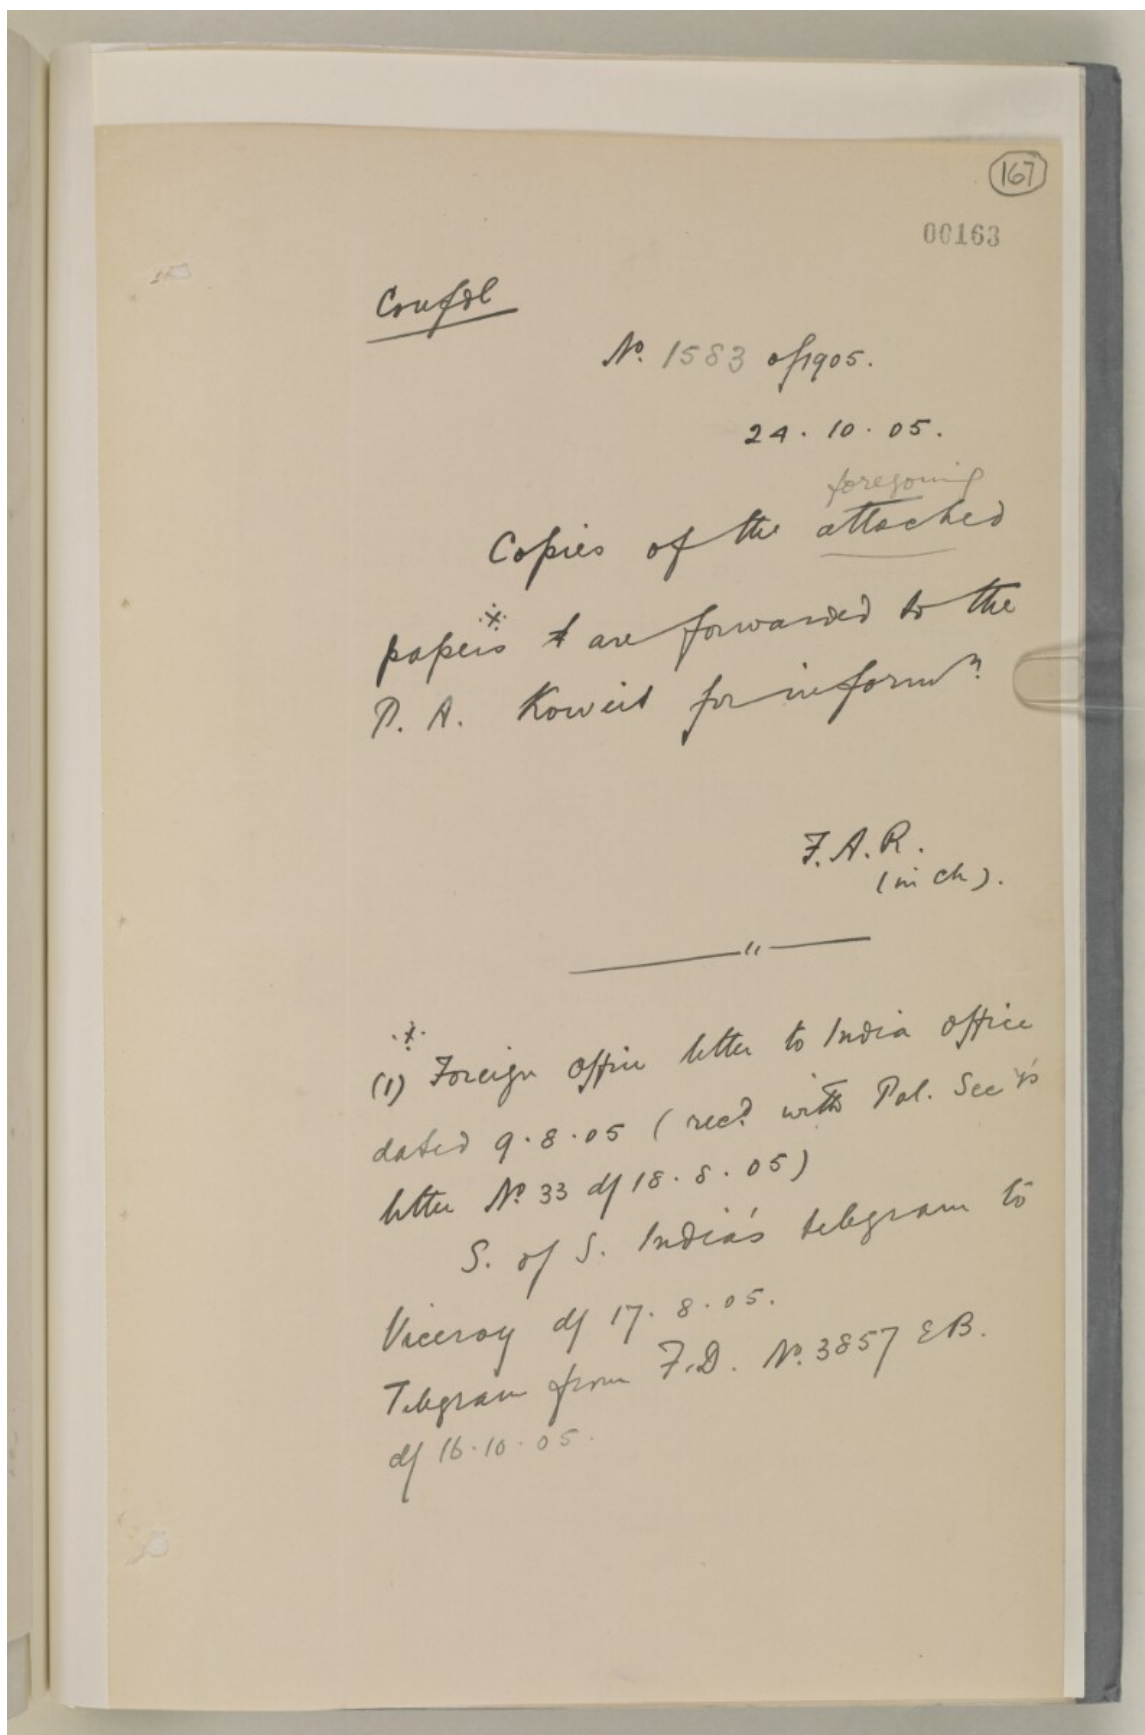 167
00163
Confdl
No. 1583 of 1905.
24. 10. 05.
foregoing
Copies of the attached
papers are forwarded to the
P. A. Koweit for informn.
F. A. R.
(in ch).
(1) Foreign Office letter to India Office
dated 9.8.05 (recd. with Pol. Secy's
letter No. 33 d/ 18. 8. 05)
S. of S. India's telegram to
Viceroy d/ 17. 8. 05.
Telegram from F.D. No. 3857 EB.
d/ 16.10.05.